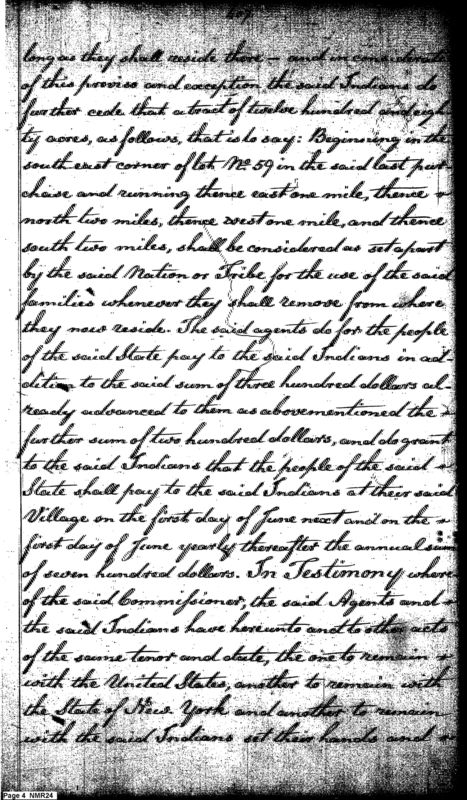 long as they shall reside there – and in considerate
of this proviso and exception, the said Indians do
further cede that a tract of twelve hundred and eigh
ty acres, as follows, that is to say: Beginning in the
south east corner of lot No. 59 in the said last pur
chase and running thence east one mile, thence
north two miles, thence west one mile, and thence
south two miles, shall be considered as set apart
by the said Nation or Tribe for the use of the said
families whenever they shall remove from where
they now reside. The said agents do for the people
of the said State pay to the said Indians in ad-
dition to the said sum of three hundred dollars al-
ready advanced to them as abovementioned the
further sum of two hundred dollars, and do grant
to the said Indians that the people of the said
State shall pay to the said Indians at their said
Village on the first day of June next and on the
first day of June yearly thereafter the annual sum
of seven hundred dollars. In Testimony where
of the said Commissioner, the said Agents and
the said Indians have hereunto and to other acts
of the same tenor and date, the one to remain
with the United States, another to remain with
the State of New York and another to remain
with the said Indians set their hands and
Page 4 NMR24